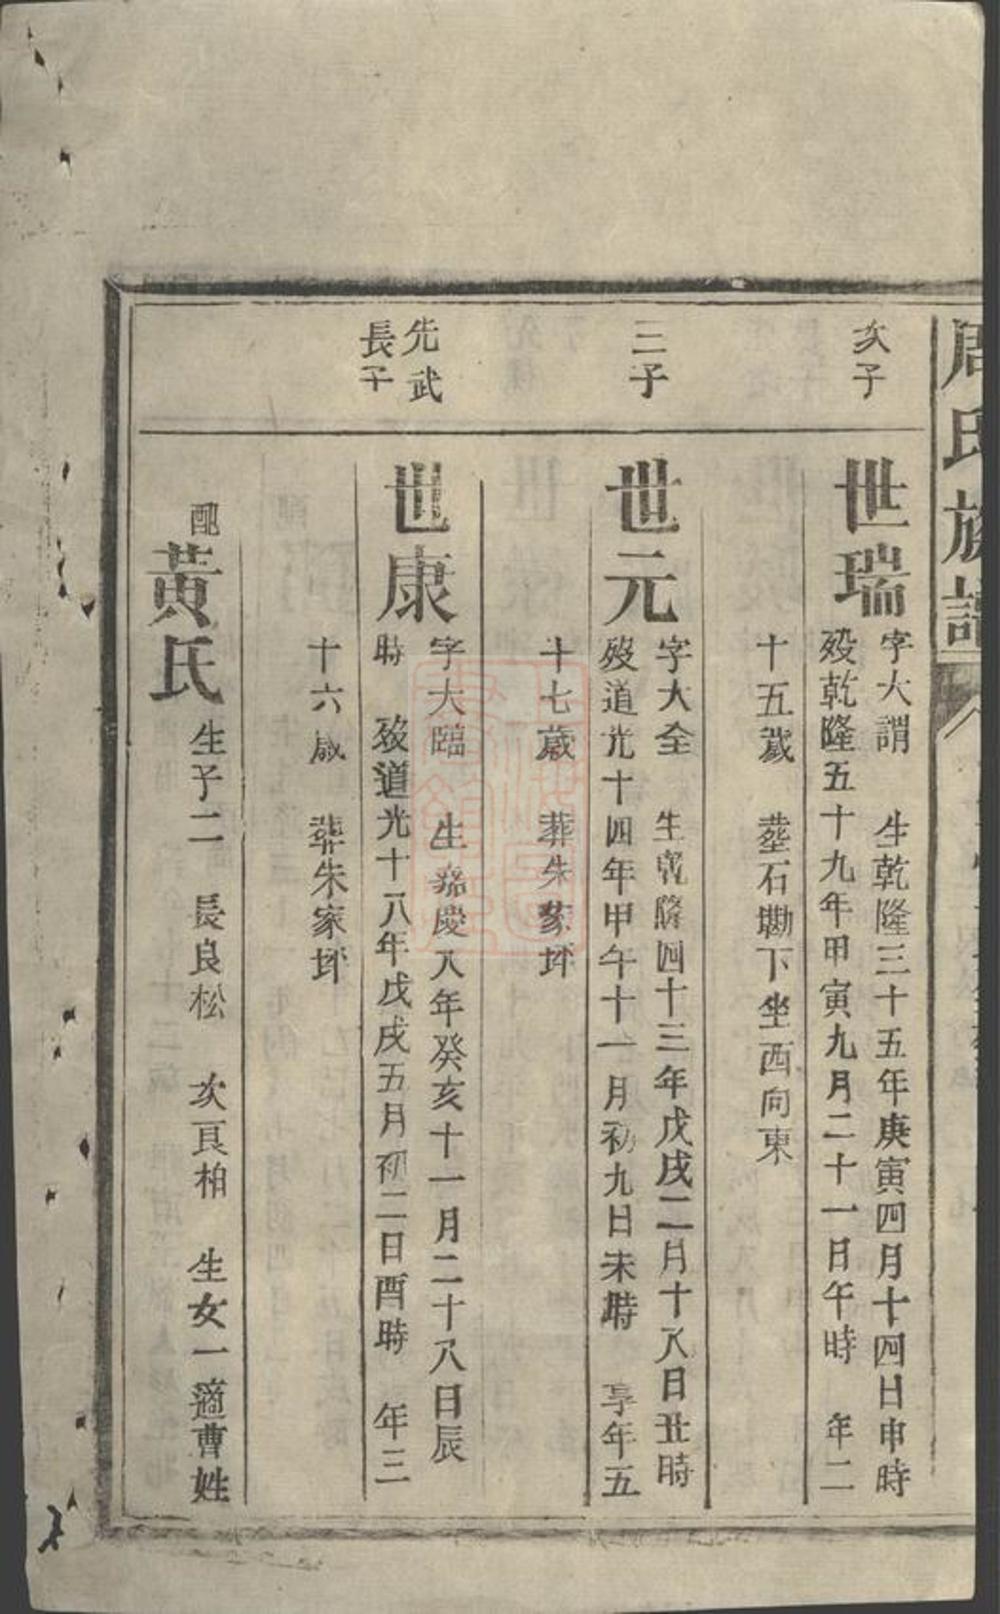 周氏族譜
次子
世瑞
字大謂 生乾隆三十五年庚寅四月十四日申時
歿乾隆五十九年甲寅九月二十一日午時 年二
十五歲 塟石墈下坐西向東
三子
世元
字大全 生乾隆四十三年戊戌二月十八日丑時
歿道光十四年甲午十一月初九日未時 享年五
十七歲 葬朱家坪
先武
長子
世康
字大臨 生嘉慶八年癸亥十一月二十八日辰
時 歿道光十八年戊戌五月初二日酉時 年三
十六歲 葬朱家坪
配黃氏 生子二 長良松 次良柏 生女一適曹姓